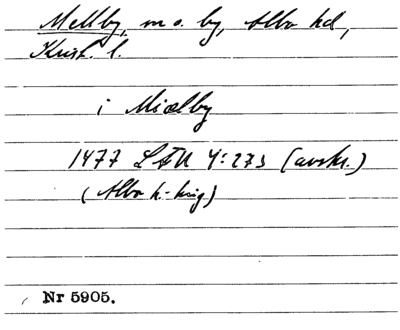 Mellby, m o. by, Albo hd,
Krist. l.
i Miælby
1477 LÅU 4:273 (avskr.)
(Albo h.-ting)
Nr 5905.